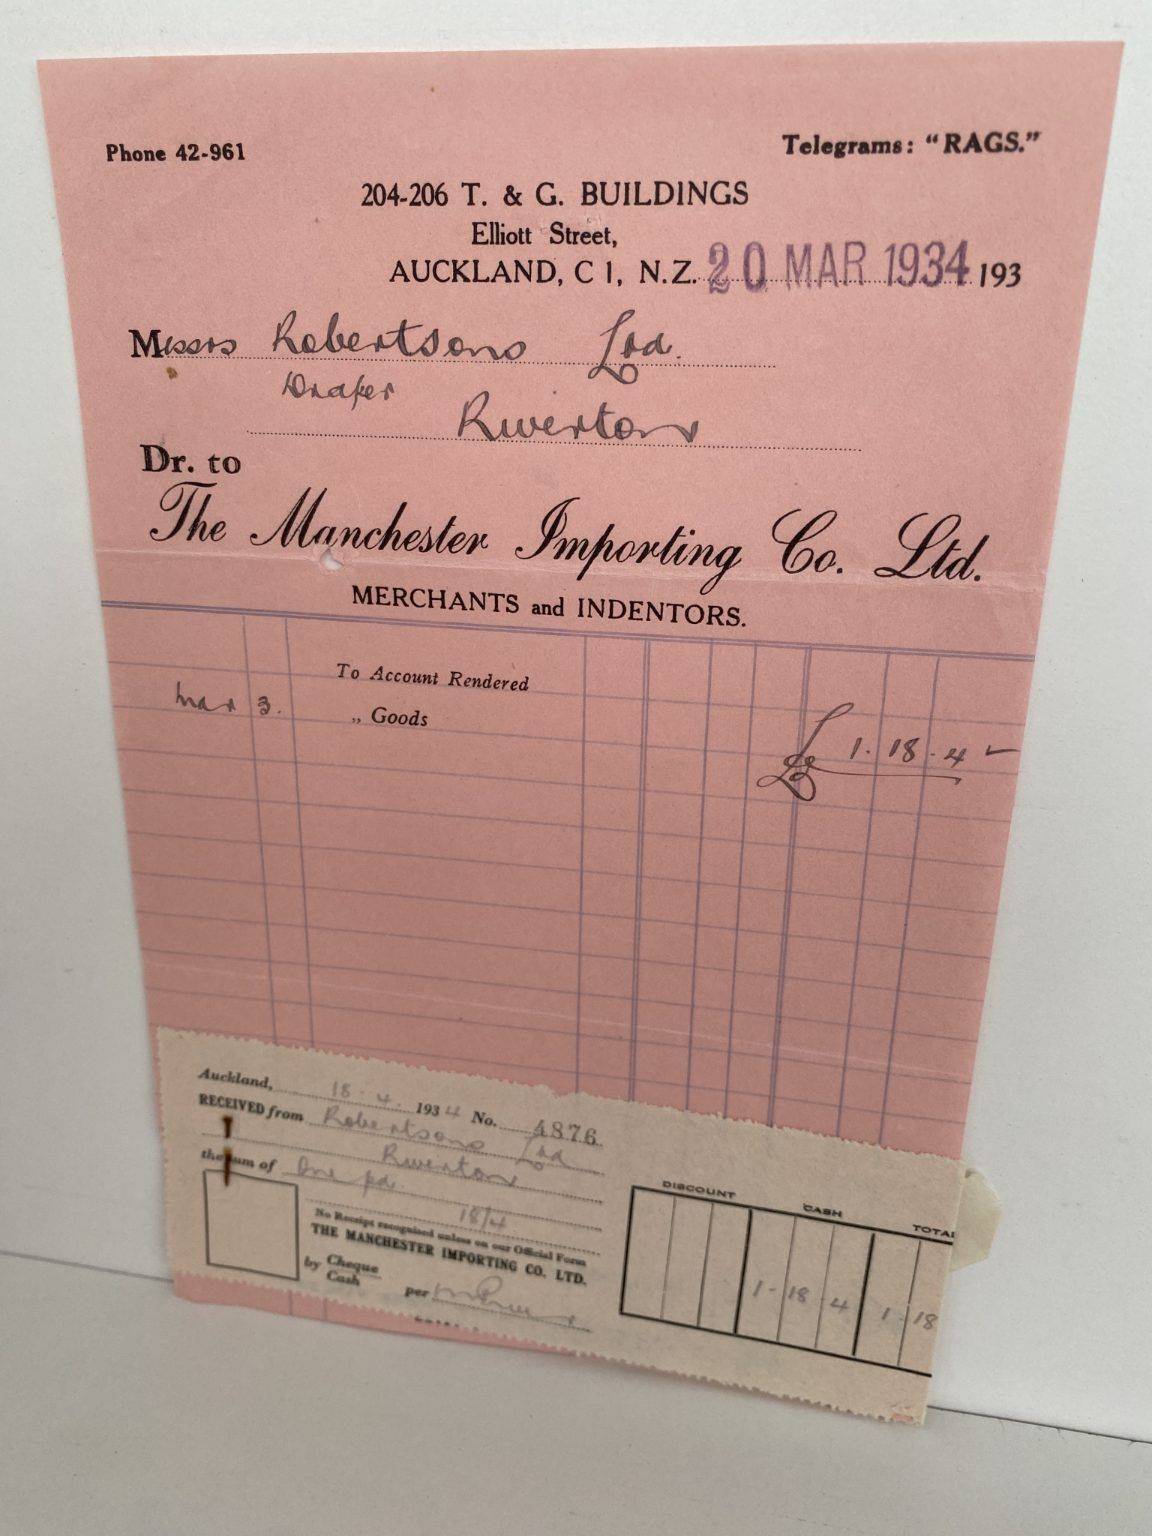 Phone 42-961
Telegrams: "RAGS."
204-206 T. & G. BUILDINGS
Elliott Street,
AUCKLAND, C 1, N.Z. 20 MAR 1934 193
Messrs Robertsons Ltd.
Draper
Riverton
Dr. to
The Manchester Importing Co. Ltd.
MERCHANTS and INDENTORS.
To Account Rendered
Mar 3. „ Goods
£ 1. 18. 4
Auckland, 18. 4. 1934 No. 4876
RECEIVED from Robertsons Ltd
Riverton
the sum of One pd.
18/4
No Receipt recognised unless on our Official Form
THE MANCHESTER IMPORTING CO. LTD.
by Cheque
Cash
per
DISCOUNT CASH TOTA
1 - 18 4 1 - 18